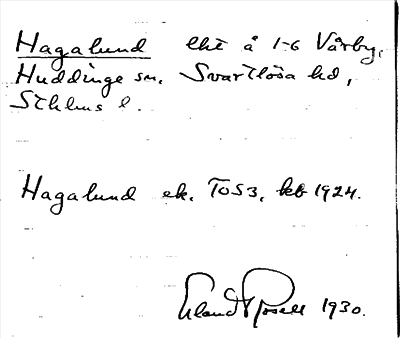 Hagalund lht å 1-6 Vårby,
Huddinge sn, Svartlösa hd,
Sthlms l.
Hagalund ek. TOS3, kb 1924.
Erland Rosell 1930.